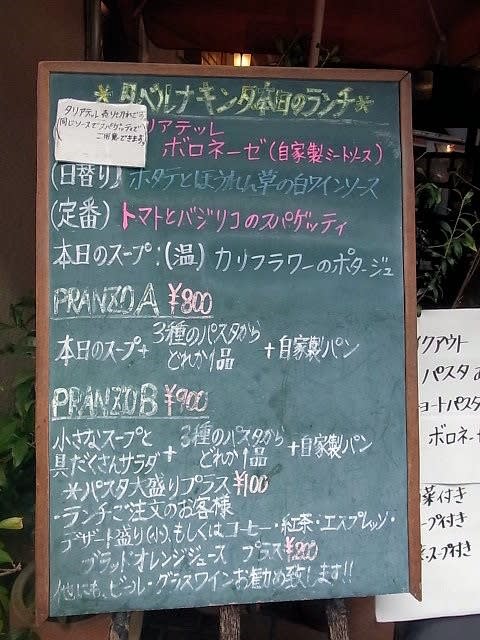 *タベルナキンタ本日のランチ*
タリアテッレ売り切れです。
同じソースでスパゲッティで
ご用意できます。
リアテッレ
ボロネーゼ(自家製ミートソース)
(日替り) ホタテとほうれん草の白ワインソース
(定番) トマトとバジリコのスパゲッティ
本日のスープ:(温) カリフラワーのポタージュ
PRANZO A ¥800
本日のスープ+3種のパスタから
どれか1品
+自家製パン
PRANZO B ¥900
小さなスープと
具だくさんサラダ
+3種のパスタから
どれか1品
+自家製パン
*パスタ大盛りプラス¥100
・ランチご注文のお客様
デザート盛り(小)、もしくはコーヒー・紅茶・エスプレッソ・
ブラッドオレンジジュース プラス¥200
他にも、ビール・グラスワインお勧め致します!!
イクアウト
パスタ
ョートパスタ
ボロネー
菜付き
ープ付き
スープ付き